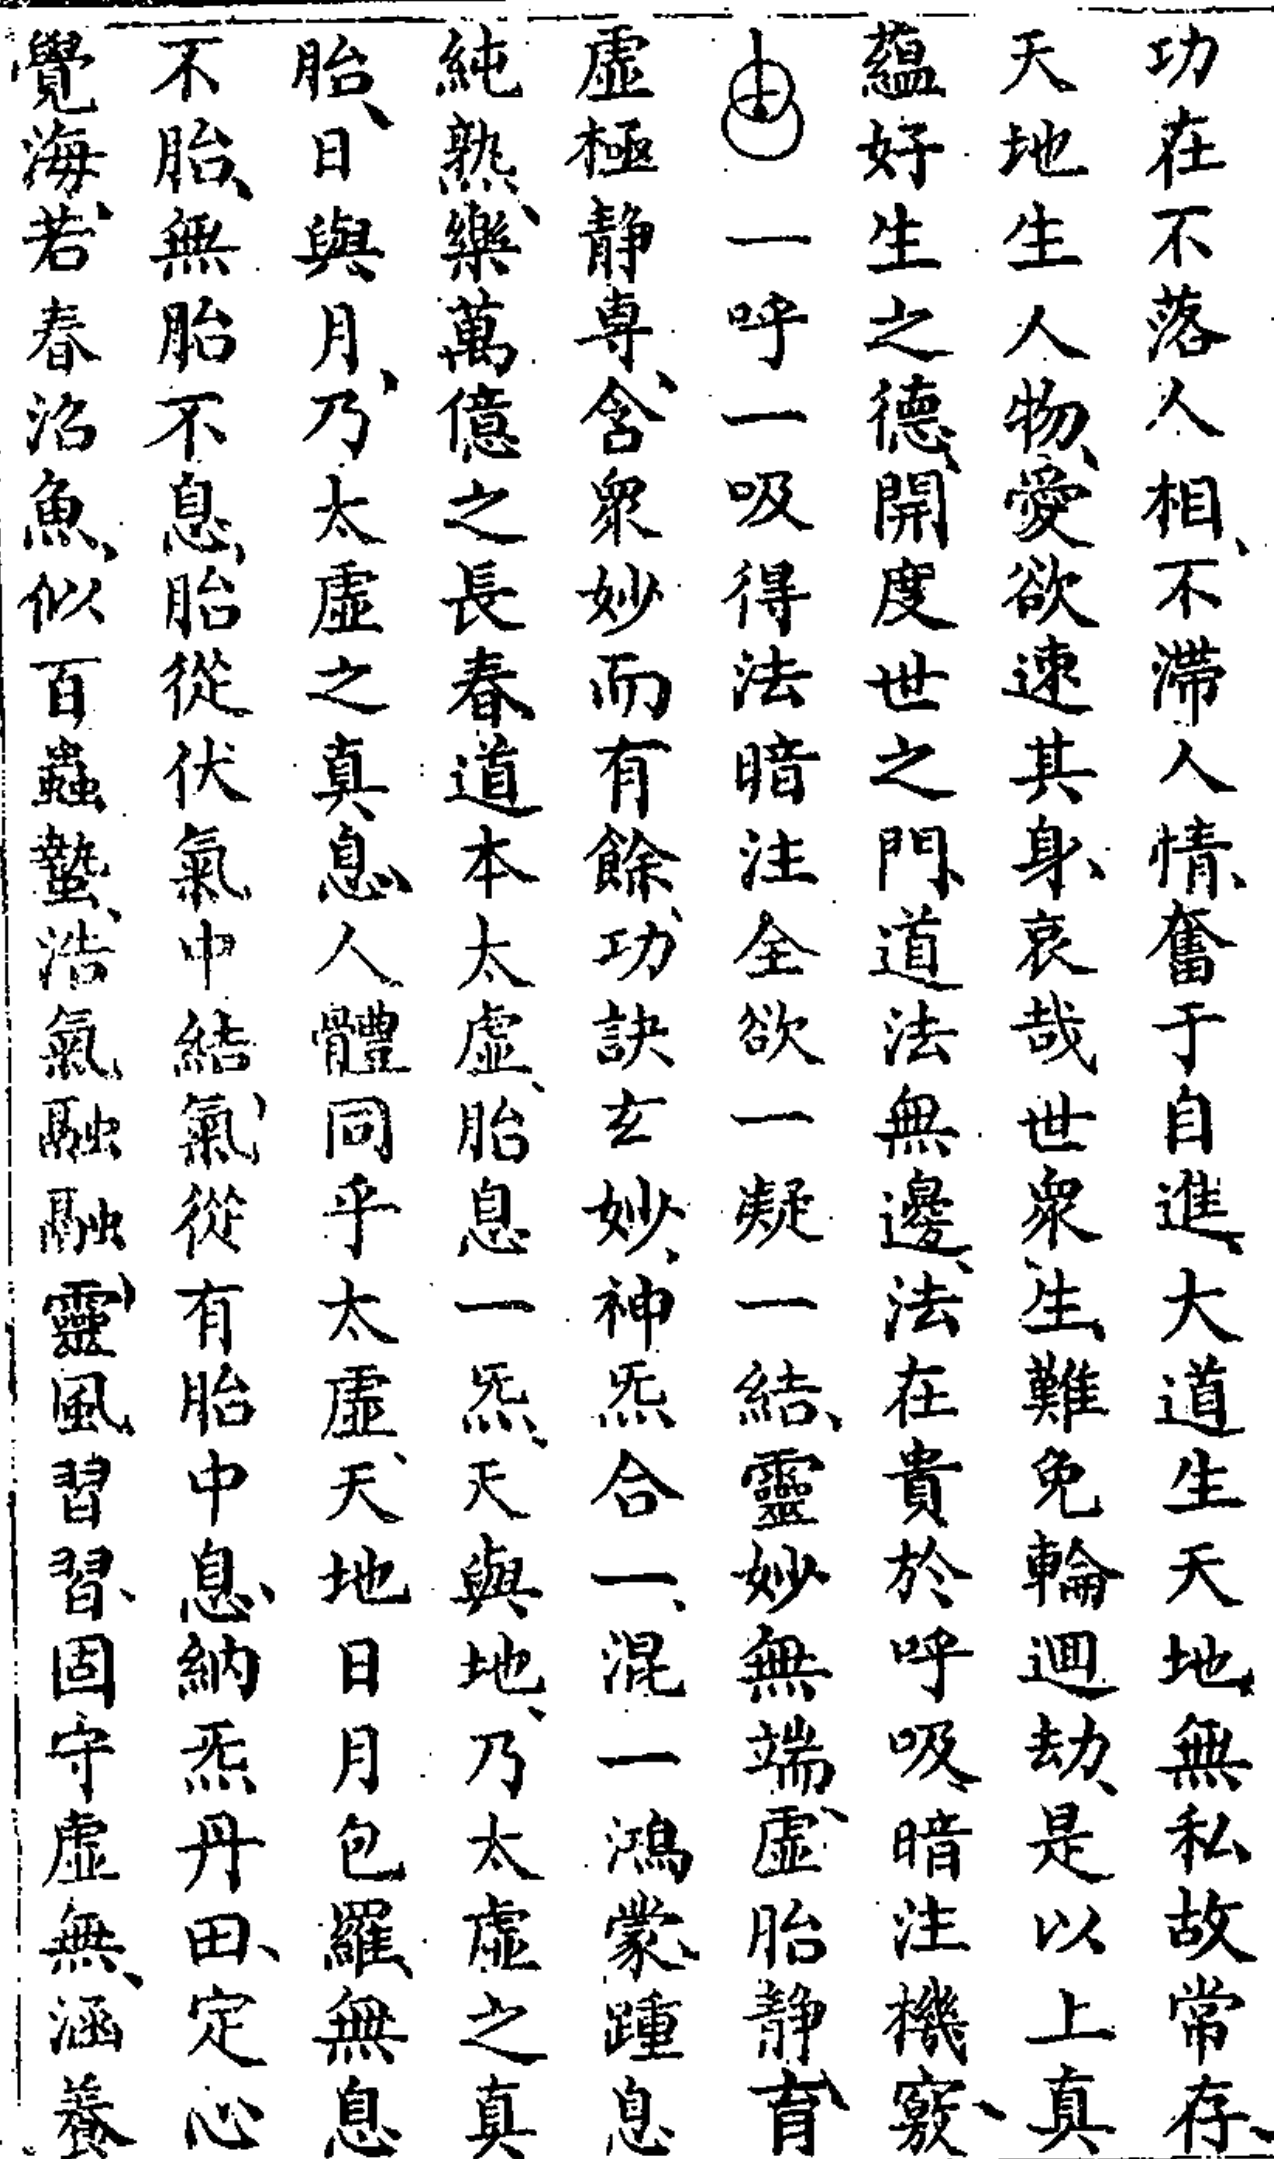 功在不落人相、不滯人情、奮于自進、大道生天地、無私故常存、
天地生人物、愛欲速其身、哀哉世衆生、難免輪迴劫、是以上真
蘊好生之德、開度世之門、道法無邊、法在貴於呼吸、暗注機竅、
一呼一吸得法暗注全欲一凝一結、靈妙無端、虛胎靜育、
虛極靜專、含衆妙而有餘、功訣玄妙、神炁合一、混一鴻蒙、踵息
純熟、樂萬億之長春、道本太虛、胎息一炁、天與地、乃太虛之真
胎、日與月、乃太虛之真息、人體同乎太虛、天地日月包羅無息
不胎、無胎不息、胎從伏氣中結、氣從有胎中息、納炁丹田、定心
覺海、若春沼魚、似百蟲蟄、浩氣融融、靈風習習、固守虛無、涵養